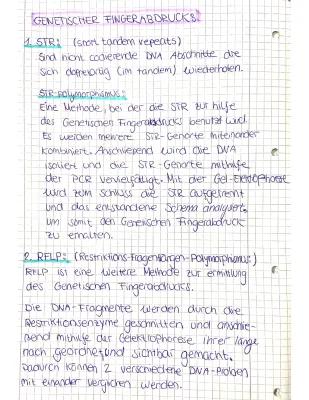 GENETISCHER FINGERABDRUCKS:
1. STR: (short tandem repeats)
Sind nicht codierende DNA Abschnitte die
sich doppelartig (im tandem) wiederholen.
STR-polymorphismus:
Eine Methode, bei der die STR zur hilfe
des Genetischen Fingerabdrucks benutzt wird.
Es werden mehrere STR-Genorte miteinander
kombiniert. Anschließend wird die DNA
isoliert und die STR-Genorte mithilfe
der PCR vervielfältigt. Mit der Gel-Elektrophorese
wird zum Schluss die STR aufgetrennt
und das entstandene Schema analysiert,
um somit den Genetischen Fingerabdruck
zu erhalten.
2. RFLP: (Restriktions-Fragentlängen-Polymorphismus:)
RFLP ist eine weitere Methode zur ermittlung
des Genetischen Fingerabdrucks.
Die DNA-Fragmente werden durch die
Restriktionsenzyme geschnitten und anschlie-
ßend mithilfe der Gelektrophorese ihrer länge
nach geordnet und sichtbar gemacht.
Dadurch können 2 verschiedene DNA-Proben
mit einander verglichen werden.